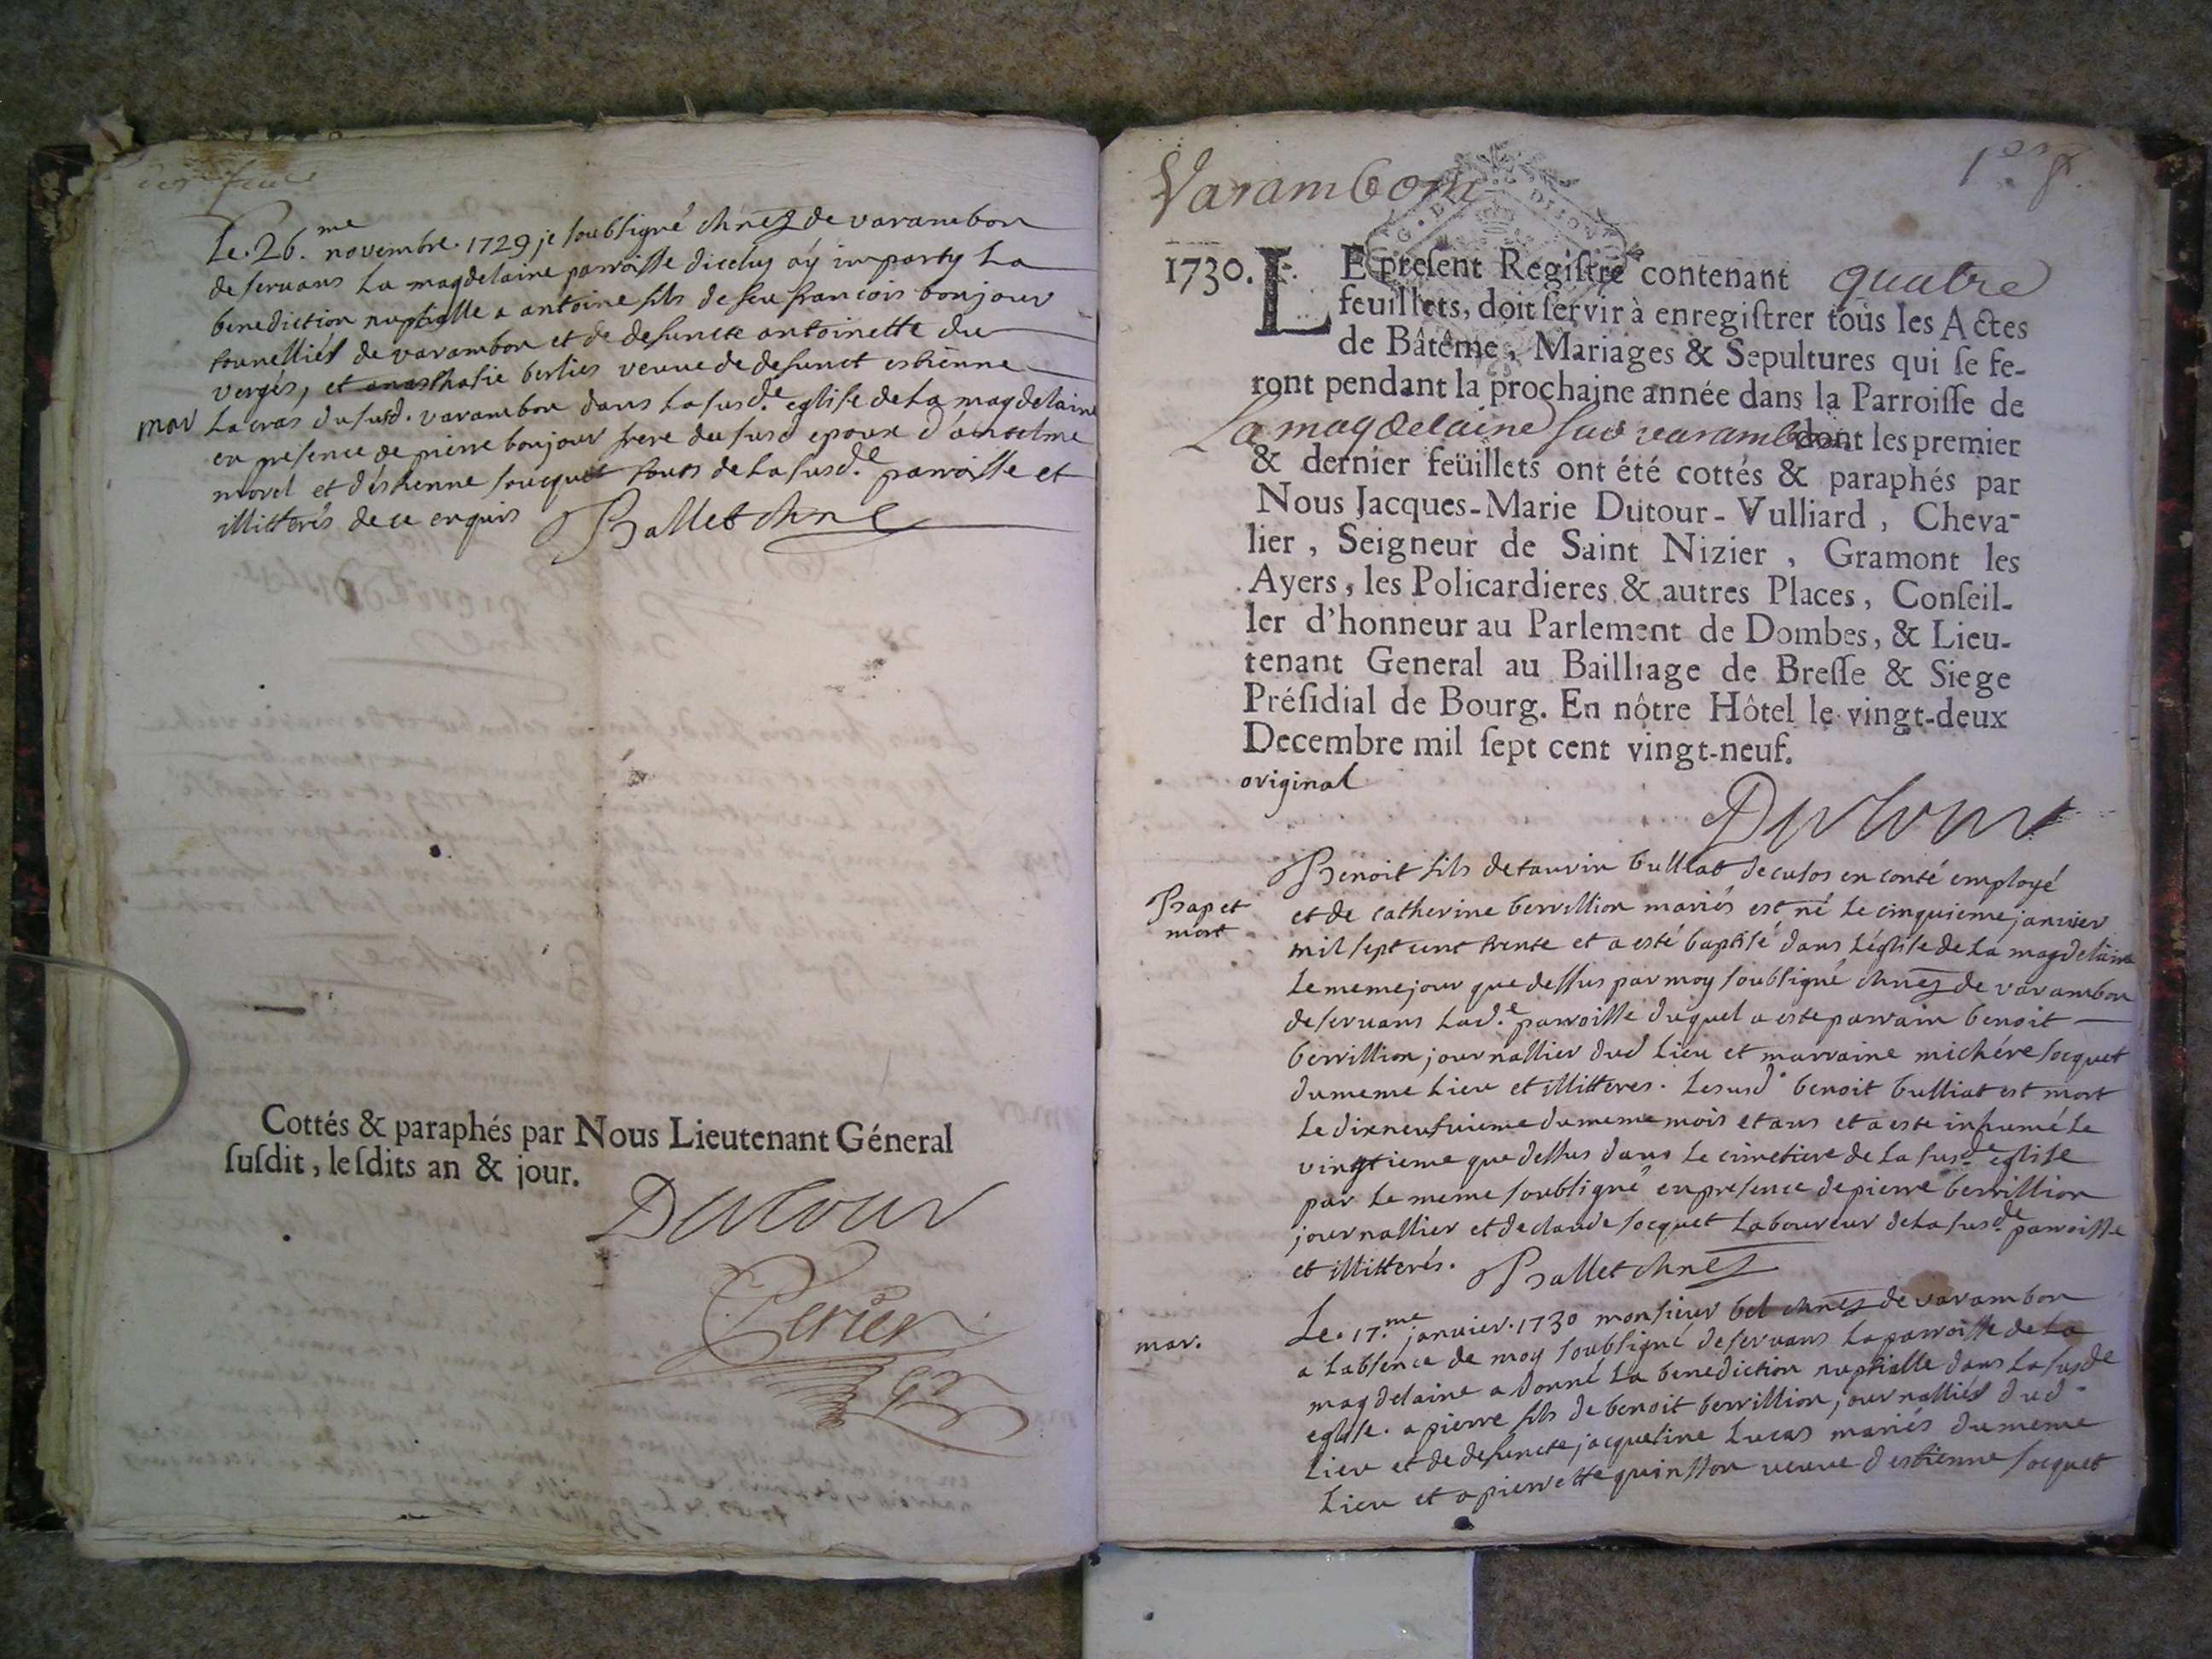 Le. 26.me novembre. 1729 je soubsigné chnez de varambon
deservans la magdelaine parroisse diceluy ay imparty la
benediction nuptialle a antoine fils de feu francois bonjour
de varambon et de defuncte antoinette du
vergés, et anasthasie berlies veuve de defunct estienne
mar
Lacras du susd. varambon dans la susd.e eglise de la magdelaine
en presence de pierre bonjour frere du susd epoux d'anselme
morel et d'éstienne soucquet tous de la susd.e parroisse et
illitterés de ce enquis Ballet chne
Cottés & paraphés par Nous Lieutenant Géneral
susdit, lesdits an & jour.
Dutour
Perier
Varambon
1er f.
1730. LE present Registre contenant quatre
feuillets, doit servir à enregistrer tous les Actes
de Bâtême, Mariages & Sepultures qui se fe-
ront pendant la prochaine année dans la Parroisse de
La magdelaine sur varambon dont les premier
& dernier feüillets ont été cottés & paraphés par
Nous Jacques-Marie Dutour-Vulliard, Cheva-
lier, Seigneur de Saint Nizier, Gramont les
Ayers, les Policardieres & autres Places, Conseil-
ler d'honneur au Parlement de Dombes, & Lieu-
tenant General au Bailliage de Bresse & Siege
Présidial de Bourg. En nôtre Hôtel le vingt-deux
Decembre mil sept cent vingt-neuf.
original
Dutour
Bap et
mort
Benoit fils de taurin bulliat de cusos en conté employé
et de catherine berrillion mariés est né le cinquieme janvier
mil sept cent trente et a esté baptisé dans l'église de la magdelaine
le meme jour que dessus par moy soubsigné chnez de varambon
deservans lad.e parroisse duquel a este parrain benoit
berrillion journallier dud lieu et marraine michére socquet
du meme lieu et illitteres. Le susd. benoit bulliat est mort
le dixneufvieme du meme mois et ans et a este inhumé le
vingtieme que dessus dans le cimetiere de la susde eglise
par le meme soubsigné en presence de pierre berrillion
journallier et de claude socquet laboureur de la susde parroisse
et illitterés. Ballet chnez
mar.
Le. 17.me janvier. 1730 monsieur bel chnez de varambon
a labsence de moy soubsigné deservans la parroisse de la
magdelaine a donné la benediction nuptialle dans la susde
eglise. a pierre fils de benoit berrillion, journalliér dud.
lieu et de defuncte jacqueline Lucas mariés du meme
lieu et a pierrette quinsson veuve d'estienne socquet